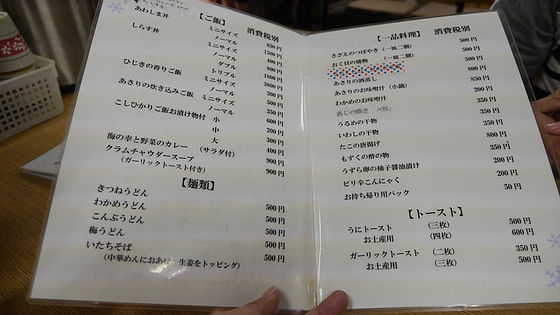 【ご飯】 消費税別
あわしま丼 ミニサイズ 650円
ノーマル 1500円
しらす丼 ミニサイズ 400円
ノーマル
ダブル 800円
トリプル 1800円
ひじきの香りご飯 ミニサイズ
ノーマル 300円
あさりの炊き込みご飯 ミニサイズ
ノーマル 350円
こしひかりご飯お漬け物付 小
中 200円
大 300円
海の幸と野菜のカレー (サラダ付) 900円
クラムチャウダースープ 900円
(ガーリックトースト付き)
【麺類】
きつねうどん 500円
わかめうどん 500円
こんぶうどん 500円
梅うどん 500円
いたちそば 500円
(中華めんにおあげ 生姜をトッピング)
【一品料理】 消費税別
さざえのつぼやき (一皿二個) 500円
おく貝の焼物 (一皿二個) 500円
500円
あさりの酒蒸し 850円
あさりのお味噌汁 (小鍋) 200円
わかめのお味噌汁 350円
うるめの干物 350円
いわしの干物 350円
たこの唐揚げ 800円
もずくの酢の物 350円
うずら卵の柚子醤油漬け 200円
ピリ辛こんにゃく 200円
お持ち帰り用パック 50円
【トースト】
うにトースト (三枚) 500円
お土産用 (四枚) 600円
ガーリックトースト (二枚) 350円
お土産用 (三枚) 500円